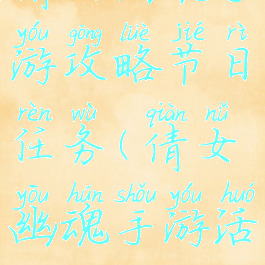 yóu gōng lüè jié rì
游攻略节日
rèn wù qiàn nǚ
任务(倩女
yōu hún shǒu yóu huó
幽魂手游活